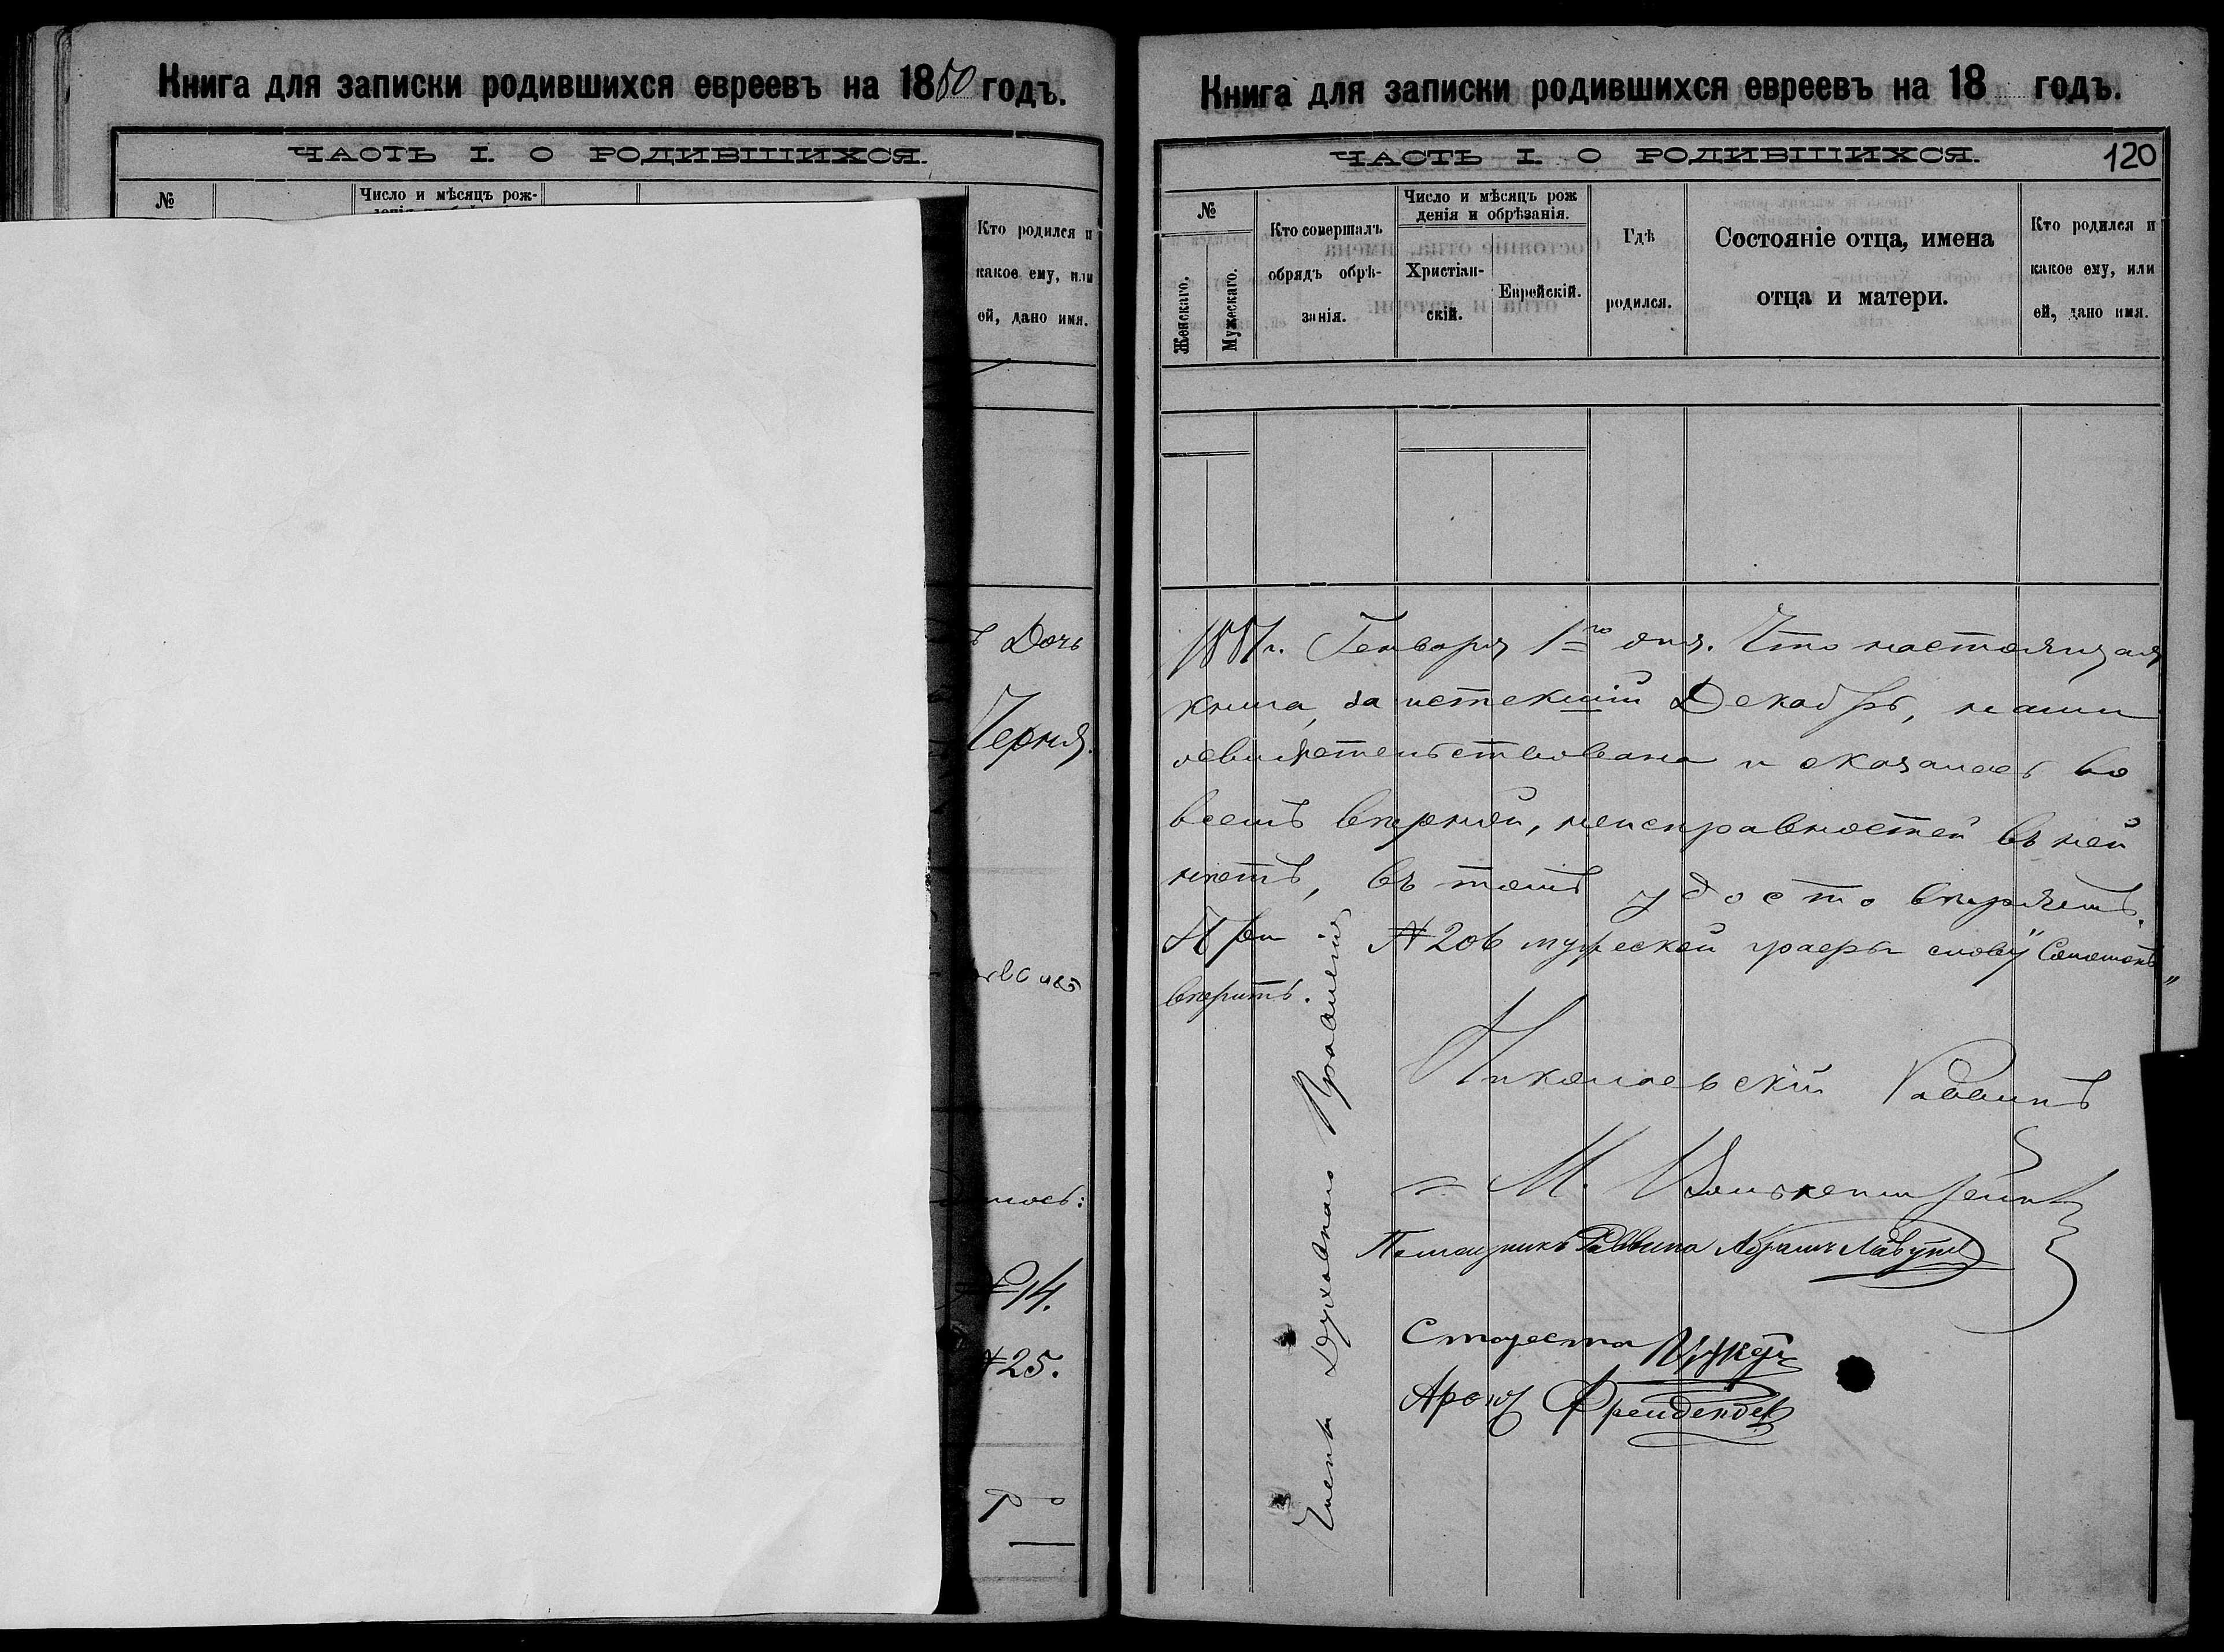 Книга для записки родившихся евреевъ на 1880 годъ.
ЧАСТЬ I. О РОДИВШИХСЯ.
№
Число и мѣсяцъ рож-
Кто родился и
какое ему, или
ей, дано имя.
Дочь
Черня.
№ 14.
№ 25.
Книга для записки родившихся евреевъ на 18 годъ.
ЧАСТЬ I. О РОДИВШИХСЯ.
120
№
Женскаго.
Мужескаго.
Кто совершалъ
обрядъ обрѣ-
занія.
Число и мѣсяцъ рож
денія и обрѣзанія.
Христіан-
скій.
Еврейскій.
Гдѣ
родился.
Состояніе отца, имена
отца и матери.
Кто родился и
какое ему, или
ей, дано имя.
1881 г. Генваря 1го дня. Что настоящая
книга, за истекшій Декабрь, нами
освидѣтельствована и оказалась во
всемъ вѣрной, неисправностей въ ней
нѣтъ, въ томъ удостовѣряемъ.
При № 206 мужеской графы слову "Соломонъ"
вѣрить.
Николаевскій Раввинъ
М.
Помощникъ Раввина Абрамъ
Члены Духовнаго Правленія
Староста
Аронъ